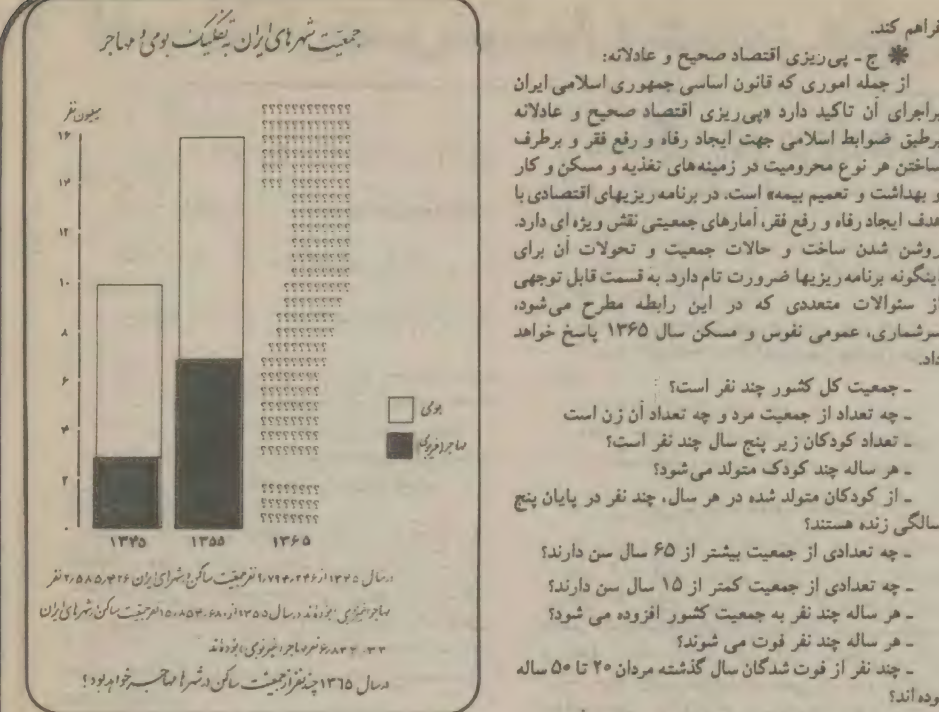 فراهم کند.
✱ ج - پی‌ریزی اقتصاد صحیح و عادلانه:
از جمله اموری که قانون اساسی جمهوری اسلامی ایران
براجرای آن تاکید دارد «پی‌ریزی اقتصاد صحیح و عادلانه
برطبق ضوابط اسلامی جهت ایجاد رفاه و رفع فقر و برطرف
ساختن هر نوع محرومیت در زمینه‌های تغذیه و مسکن و کار
و بهداشت و تعمیم بیمه» است. در برنامه‌ریزیهای اقتصادی با
هدف ایجاد رفاه و رفع فقر، آمارهای جمعیتی نقش ویژه ای دارد.
روشن شدن ساخت و حالات جمعیت و تحولات آن برای
اینگونه برنامه‌ریزیها ضرورت تام دارد. به قسمت قابل توجهی
از سئوالات متعددی که در این رابطه مطرح می‌شود،
سرشماری، عمومی نفوس و مسکن سال ۱۳۶۵ پاسخ خواهد
داد.
- جمعیت کل کشور چند نفر است؟
- چه تعداد از جمعیت مرد و چه تعداد آن زن است
- تعداد کودکان زیر پنج سال چند نفر است؟
- هر ساله چند کودک متولد می‌شود؟
- از کودکان متولد شده در هر سال، چند نفر در پایان پنج
سالگی زنده هستند؟
- چه تعدادی از جمعیت بیشتر از ۶۵ سال سن دارند؟
- چه تعدادی از جمعیت کمتر از ۱۵ سال سن دارند؟
- هر ساله چند نفر به جمعیت کشور افزوده می شود؟
- هر ساله چند نفر فوت می شوند؟
- چند نفر از فوت شدگان سال گذشته مردان ۲۰ تا ۵۰ ساله
بوده اند؟
جمعیت شهرهای ایران به تفکیک بومی و مهاجر
میلیون نفر
۱۶
۱۴
۱۲
۱۰
۸
۶
۴
۲
۰
۱۳۴۵ ۱۳۵۵ ۱۳۶۵
بومی
مهاجر (غیربومی)
در سال ۱۳۴۵ از ۹٫۷۹۴٫۲۴۶ نفر جمعیت ساکن در شهرهای ایران ۲٫۵۸۵٫۴۲۶ نفر
مهاجر (غیربومی) بوده‌اند در سال ۱۳۵۵ از ۱۵٫۸۵۴٫۶۸۰ نفر جمعیت ساکن در شهرهای ایران
۶٫۸۲۲٫۰۳۳ نفر مهاجر (غیربومی) بوده‌اند
در سال ۱۳۶۵ چند نفر از جمعیت ساکن در شهرها مهاجر خواهد بود؟